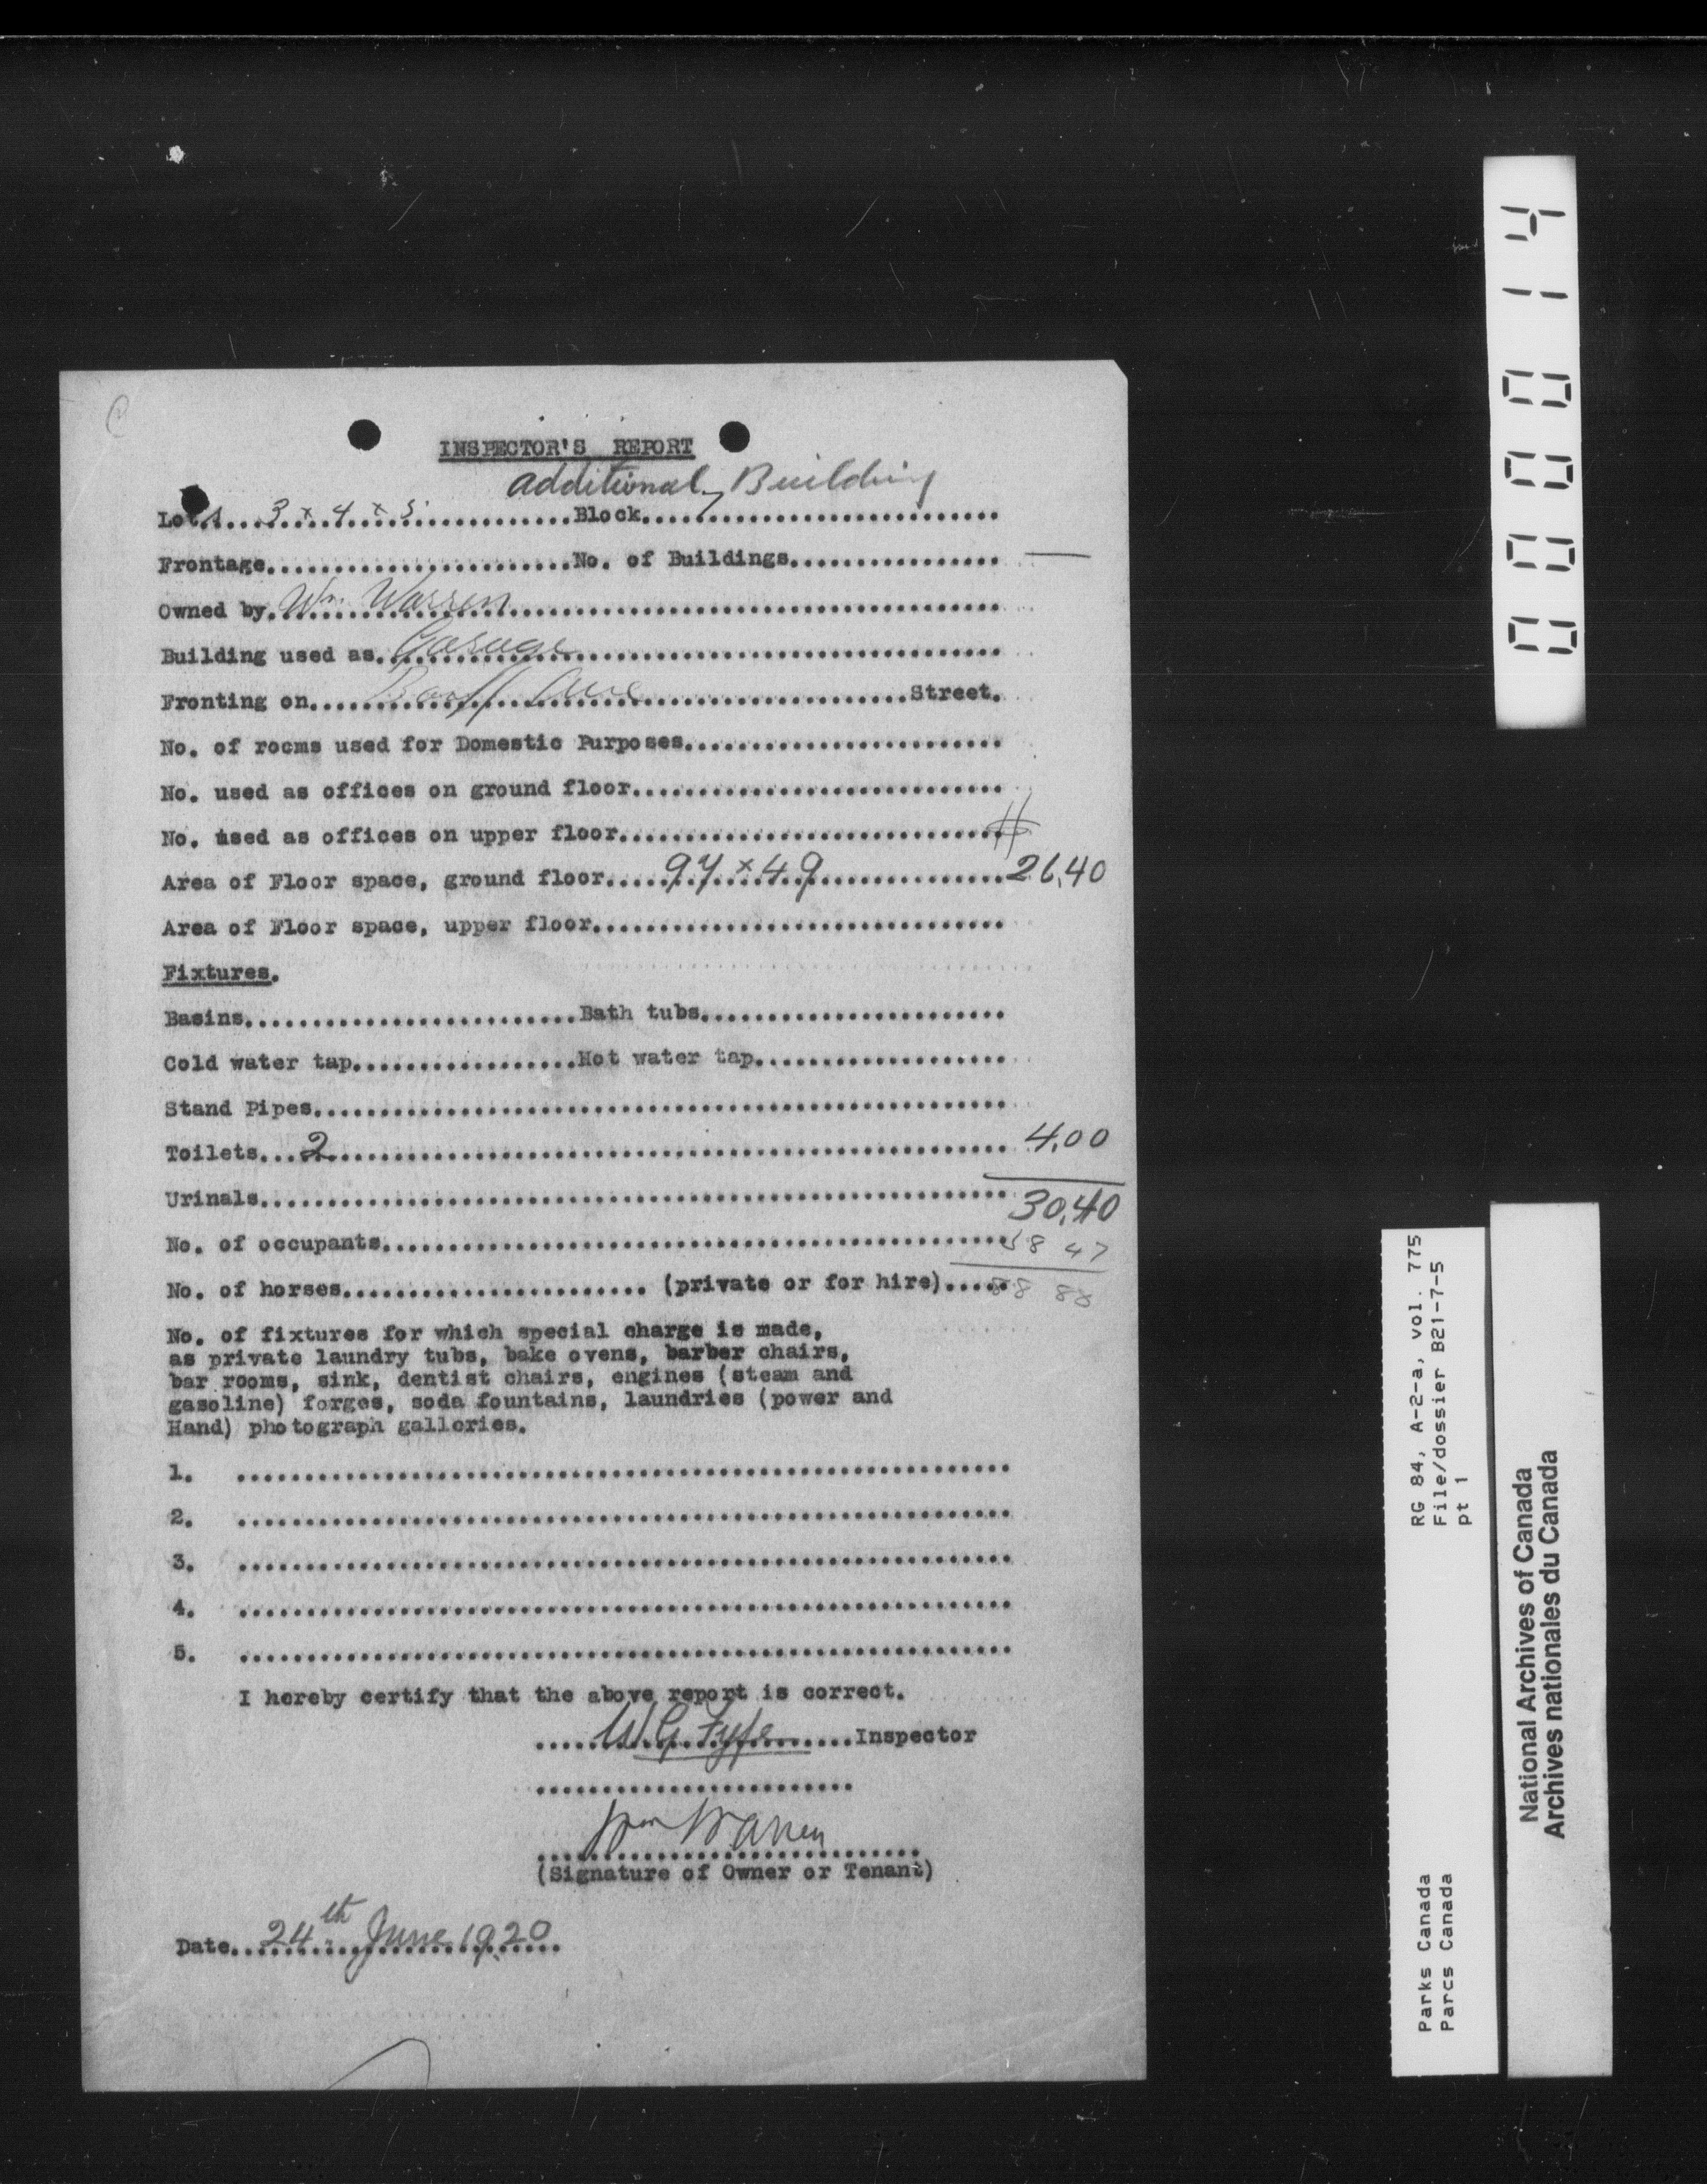 INSPECTOR'S REPORT
additional Building
Lots...3 x 4 x 5..............Block...........................
Frontage.......................No. of Buildings................
Owned by. Wm. Warren.....................................
Building used as. Garage................................
Fronting on..... Banff Ave....................Street.
No. of rooms used for Domestic Purposes........................
No. used as offices on ground floor............................
No. used as offices on upper floor.............................
Area of Floor space, ground floor.....97 x 49.............. $26.40
Area of Floor space, upper floor...............................
Fixtures.
Basins.........................Bath tubs.......................
Cold water tap.................Hot water tap...................
Stand Pipes....................................................
Toilets...2.................................................... 4.00
Urinals........................................................ 30.40
No. of occupants............................................... 58 47
No. of horses....................... (private or for hire)..... 88 88
No. of fixtures for which special charge is made,
as private laundry tubs, bake ovens, barber chairs,
bar rooms, sink, dentist chairs, engines (steam and
gasoline) forges, soda fountains, laundries (power and
Hand) photograph galleries.
1. ..........................................................
2. ..........................................................
3. ..........................................................
4. ..........................................................
5. ..........................................................
I hereby certify that the above report is correct.
.....W G Fyfe.......Inspector
........................
Wm Warren
(Signature of Owner or Tenant)
Date..24th June 1920
000014
RG 84, A-2-a, vol. 775
File/dossier B21-7-5
pt 1
Parks Canada
Parcs Canada
National Archives of Canada
Archives nationales du Canada